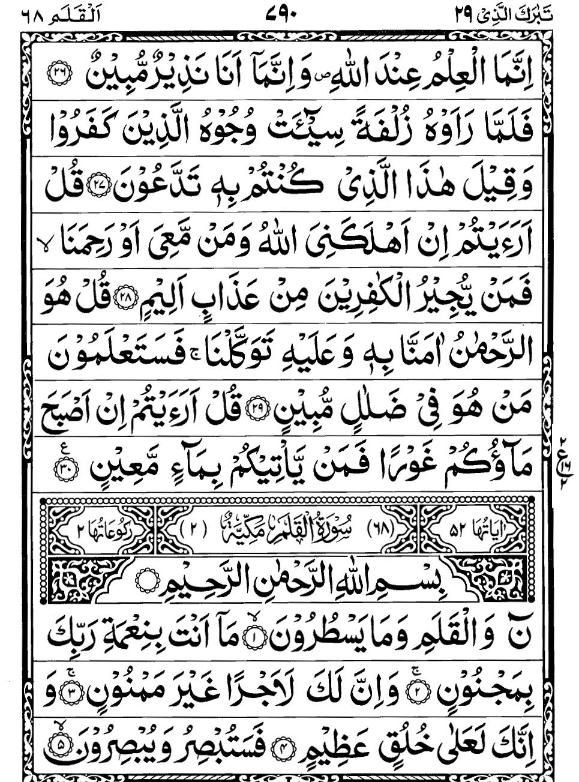 تَبٰرَكَ الَّذِیْ ۲۹ ۷۹۰ اَلْقَلَم ۶۸
اِنَّمَا الْعِلْمُ عِنْدَ اللّٰهِ ص وَ اِنَّمَاۤ اَنَا نَذِیْرٌ مُّبِیْنٌ ﴿۲۶﴾
فَلَمَّا رَاَوْهُ زُلْفَةً سِیْٓـَٔتْ وُجُوْهُ الَّذِیْنَ كَفَرُوْا
وَ قِیْلَ هٰذَا الَّذِیْ كُنْتُمْ بِهٖ تَدَّعُوْنَ ﴿۲۷﴾ قُلْ
اَرَءَیْتُمْ اِنْ اَهْلَكَنِیَ اللّٰهُ وَ مَنْ مَّعِیَ اَوْ رَحِمَنَا ۙ
فَمَنْ یُّجِیْرُ الْكٰفِرِیْنَ مِنْ عَذَابٍ اَلِیْمٍ ﴿۲۸﴾ قُلْ هُوَ
الرَّحْمٰنُ اٰمَنَّا بِهٖ وَ عَلَیْهِ تَوَكَّلْنَا ۚ فَسَتَعْلَمُوْنَ
مَنْ هُوَ فِیْ ضَلٰلٍ مُّبِیْنٍ ﴿۲۹﴾ قُلْ اَرَءَیْتُمْ اِنْ اَصْبَحَ
مَآؤُكُمْ غَوْرًا فَمَنْ یَّاْتِیْكُمْ بِمَآءٍ مَّعِیْنٍ ﴿۳۰﴾ ع
۲ ع ۱۶ ۲
اٰیَاتُهَا ۵۲ (۶۸) سُوْرَةُ الْقَلَمِ مَكِّیَّةٌ (۲) رُكُوْعَاتُهَا ۲
بِسْمِ اللّٰهِ الرَّحْمٰنِ الرَّحِیْمِ
نٓ وَ الْقَلَمِ وَ مَا یَسْطُرُوْنَ ۙ﴿۱﴾ مَاۤ اَنْتَ بِنِعْمَةِ رَبِّكَ
بِمَجْنُوْنٍ ۚ﴿۲﴾ وَ اِنَّ لَكَ لَاَجْرًا غَیْرَ مَمْنُوْنٍ ۚ﴿۳﴾ وَ
اِنَّكَ لَعَلٰی خُلُقٍ عَظِیْمٍ ﴿۴﴾ فَسَتُبْصِرُ وَ یُبْصِرُوْنَ ۙ﴿۵﴾